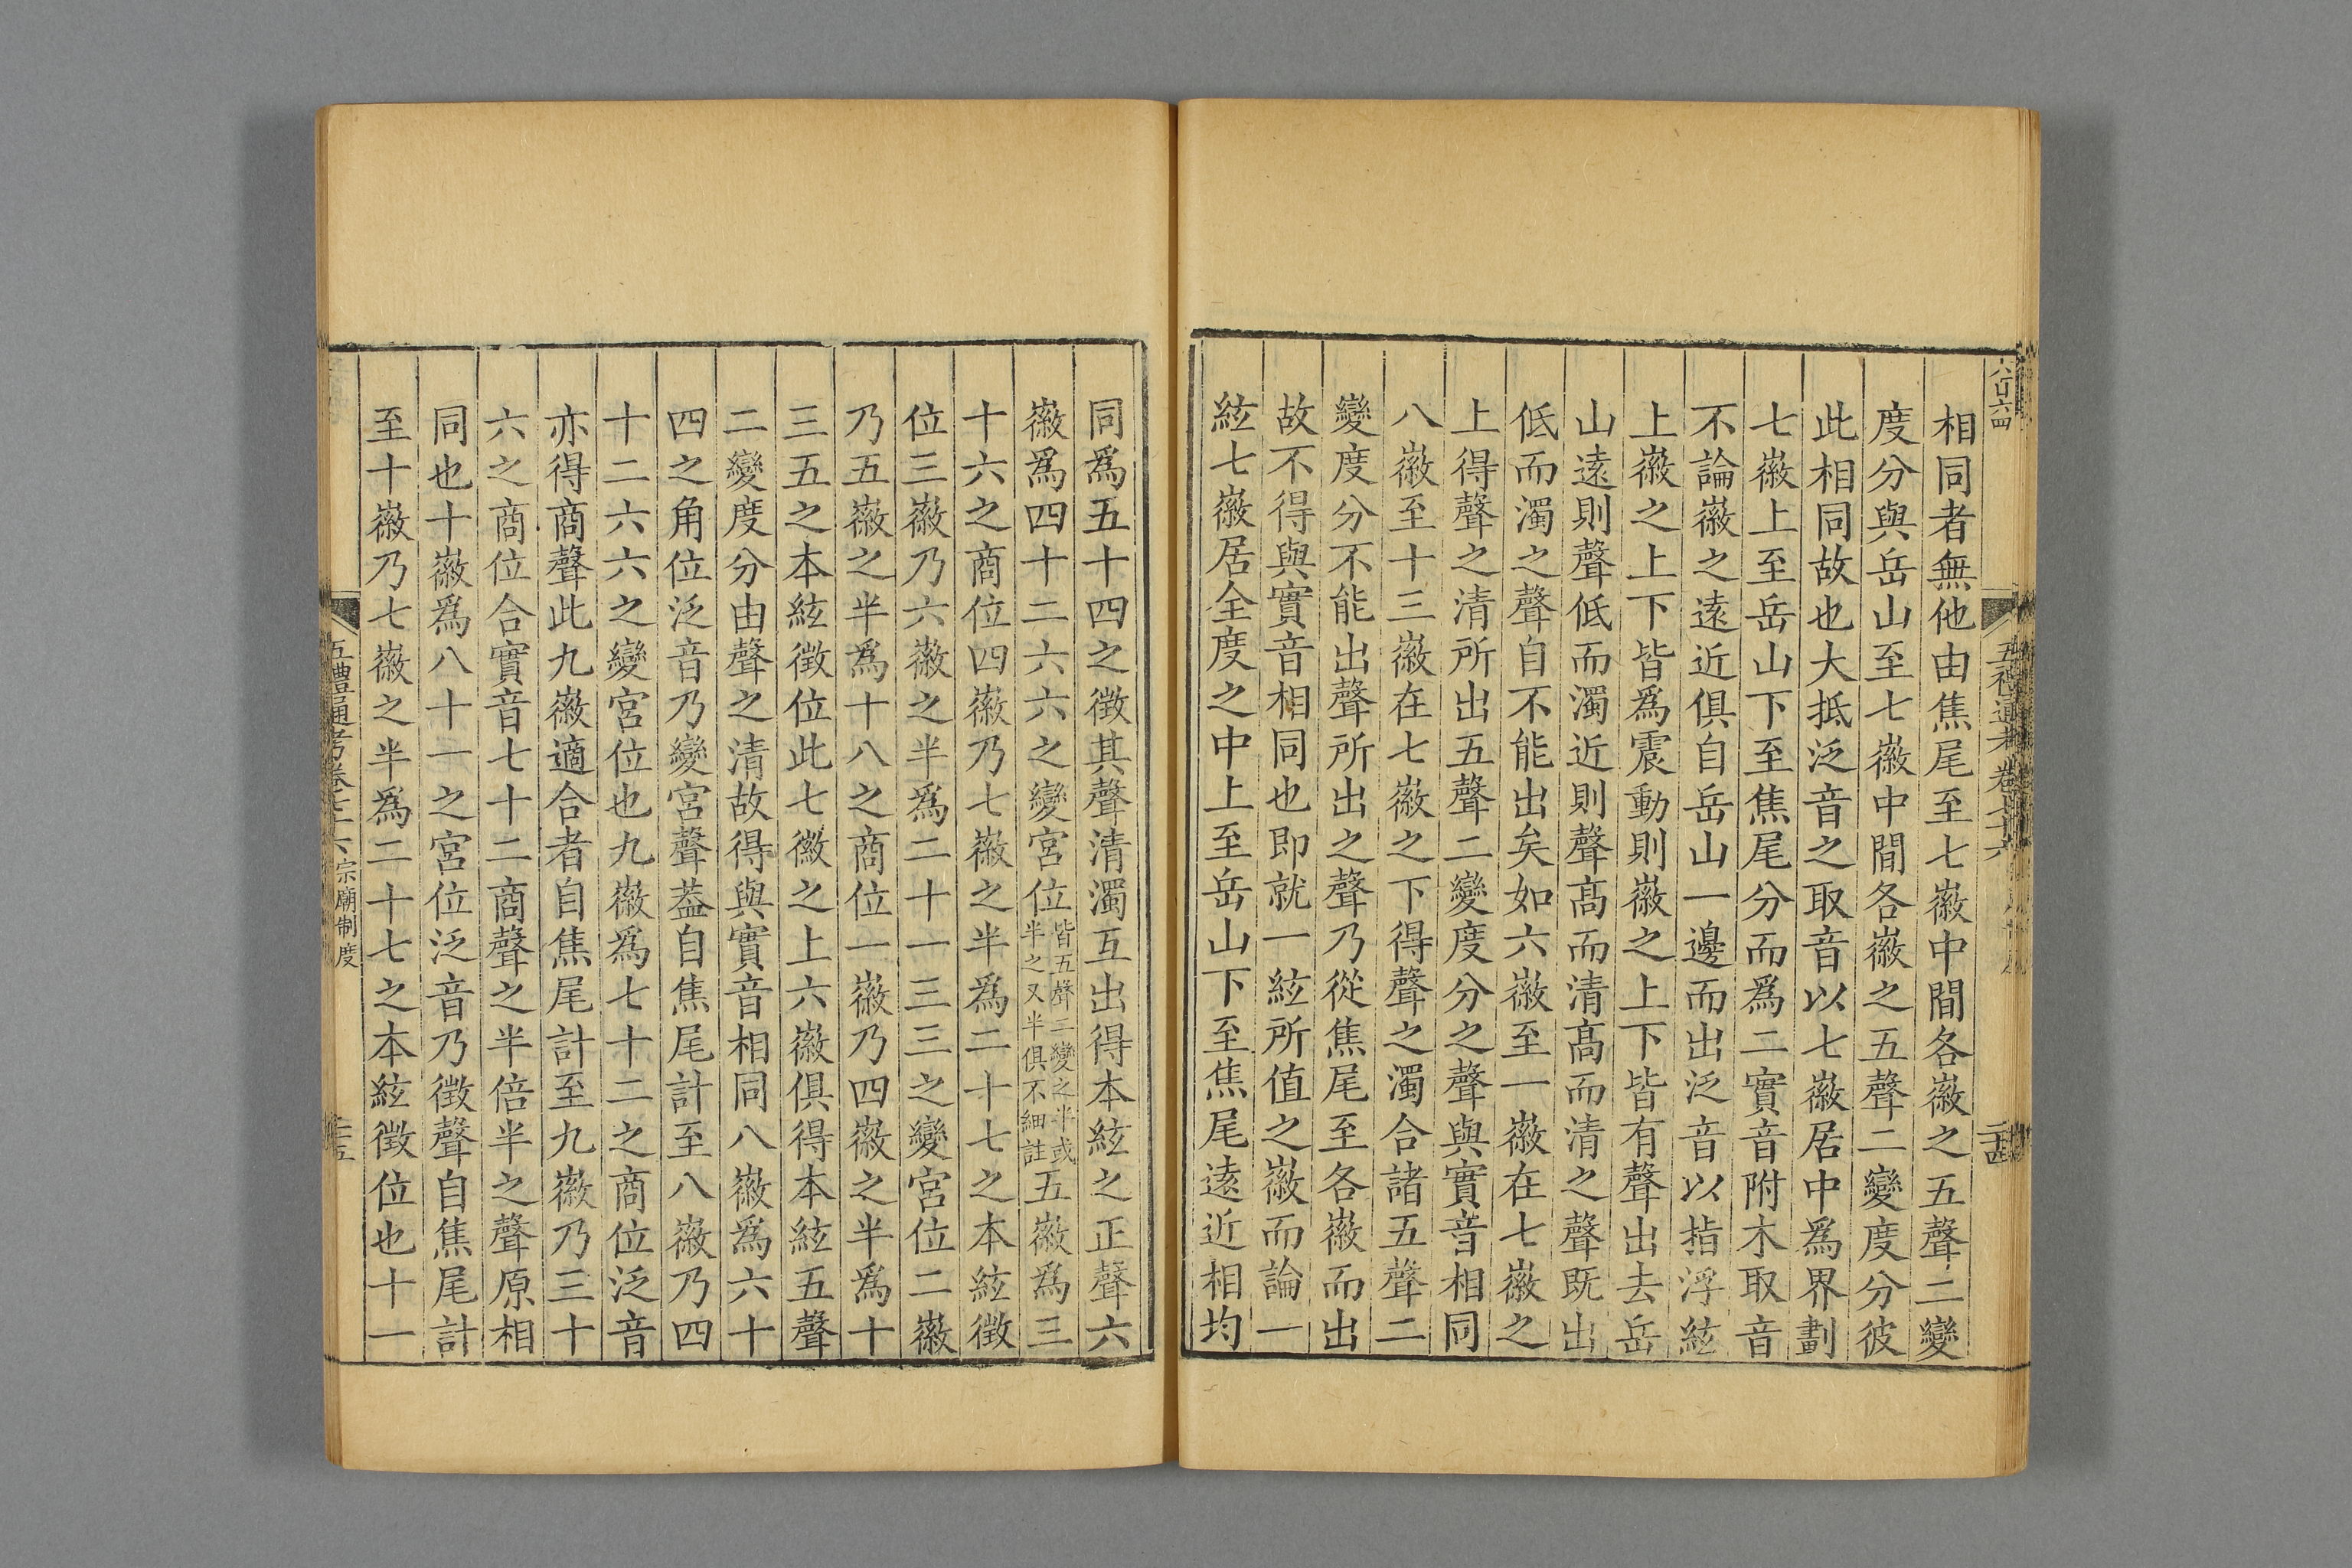 相同者無他由焦尾至七徽中間各徽之五聲二變
度分與岳山至七徽中間各徽之五聲二變度分彼
此相同故也大抵泛音之取音以七徽居中爲界劃
七徽上至岳山下至焦尾分而爲二實音附木取音
不論徽之遠近俱自岳山一邊而出泛音以指浮絃
上徽之上下皆爲震動則徽之上下皆有聲出去岳
山遠則聲低而濁近則聲髙而清髙而清之聲既出
低而濁之聲自不能出矣如六徽至一徽在七徽之
上得聲之清所出五聲二變度分之聲與實音相同
八徽至十三徽在七徽之下得聲之濁合諸五聲二
變度分不能出聲所出之聲乃從焦尾至各徽而出
故不得與實音相同也即就一絃所值之徽而論一
絃七徽居全度之中上至岳山下至焦尾遠近相均
同爲五十四之徴其聲清濁互出得本絃之正聲六
徽爲四十二六六之變宮位皆五聲二變之半或半之又半俱不細註五徽爲三
十六之商位四徽乃七徽之半爲二十七之本絃徴
位三徽乃六徽之半爲二十一三三之變宮位二徽
乃五徽之半爲十八之商位一徽乃四徽之半爲十
三五之本絃徴位此七徽之上六徽俱得本絃五聲
二變度分由聲之清故得與實音相同八徽爲六十
四之角位泛音乃變宮聲葢自焦尾計至八徽乃四
十二六六之變宮位也九徽爲七十二之商位泛音
亦得商聲此九徽適合者自焦尾計至九徽乃三十
六之商位合實音七十二商聲之半倍半之聲原相
同也十徽爲八十一之宮位泛音乃徴聲自焦尾計
至十徽乃七徽之半爲二十七之本絃徴位也十一
宗廟制度